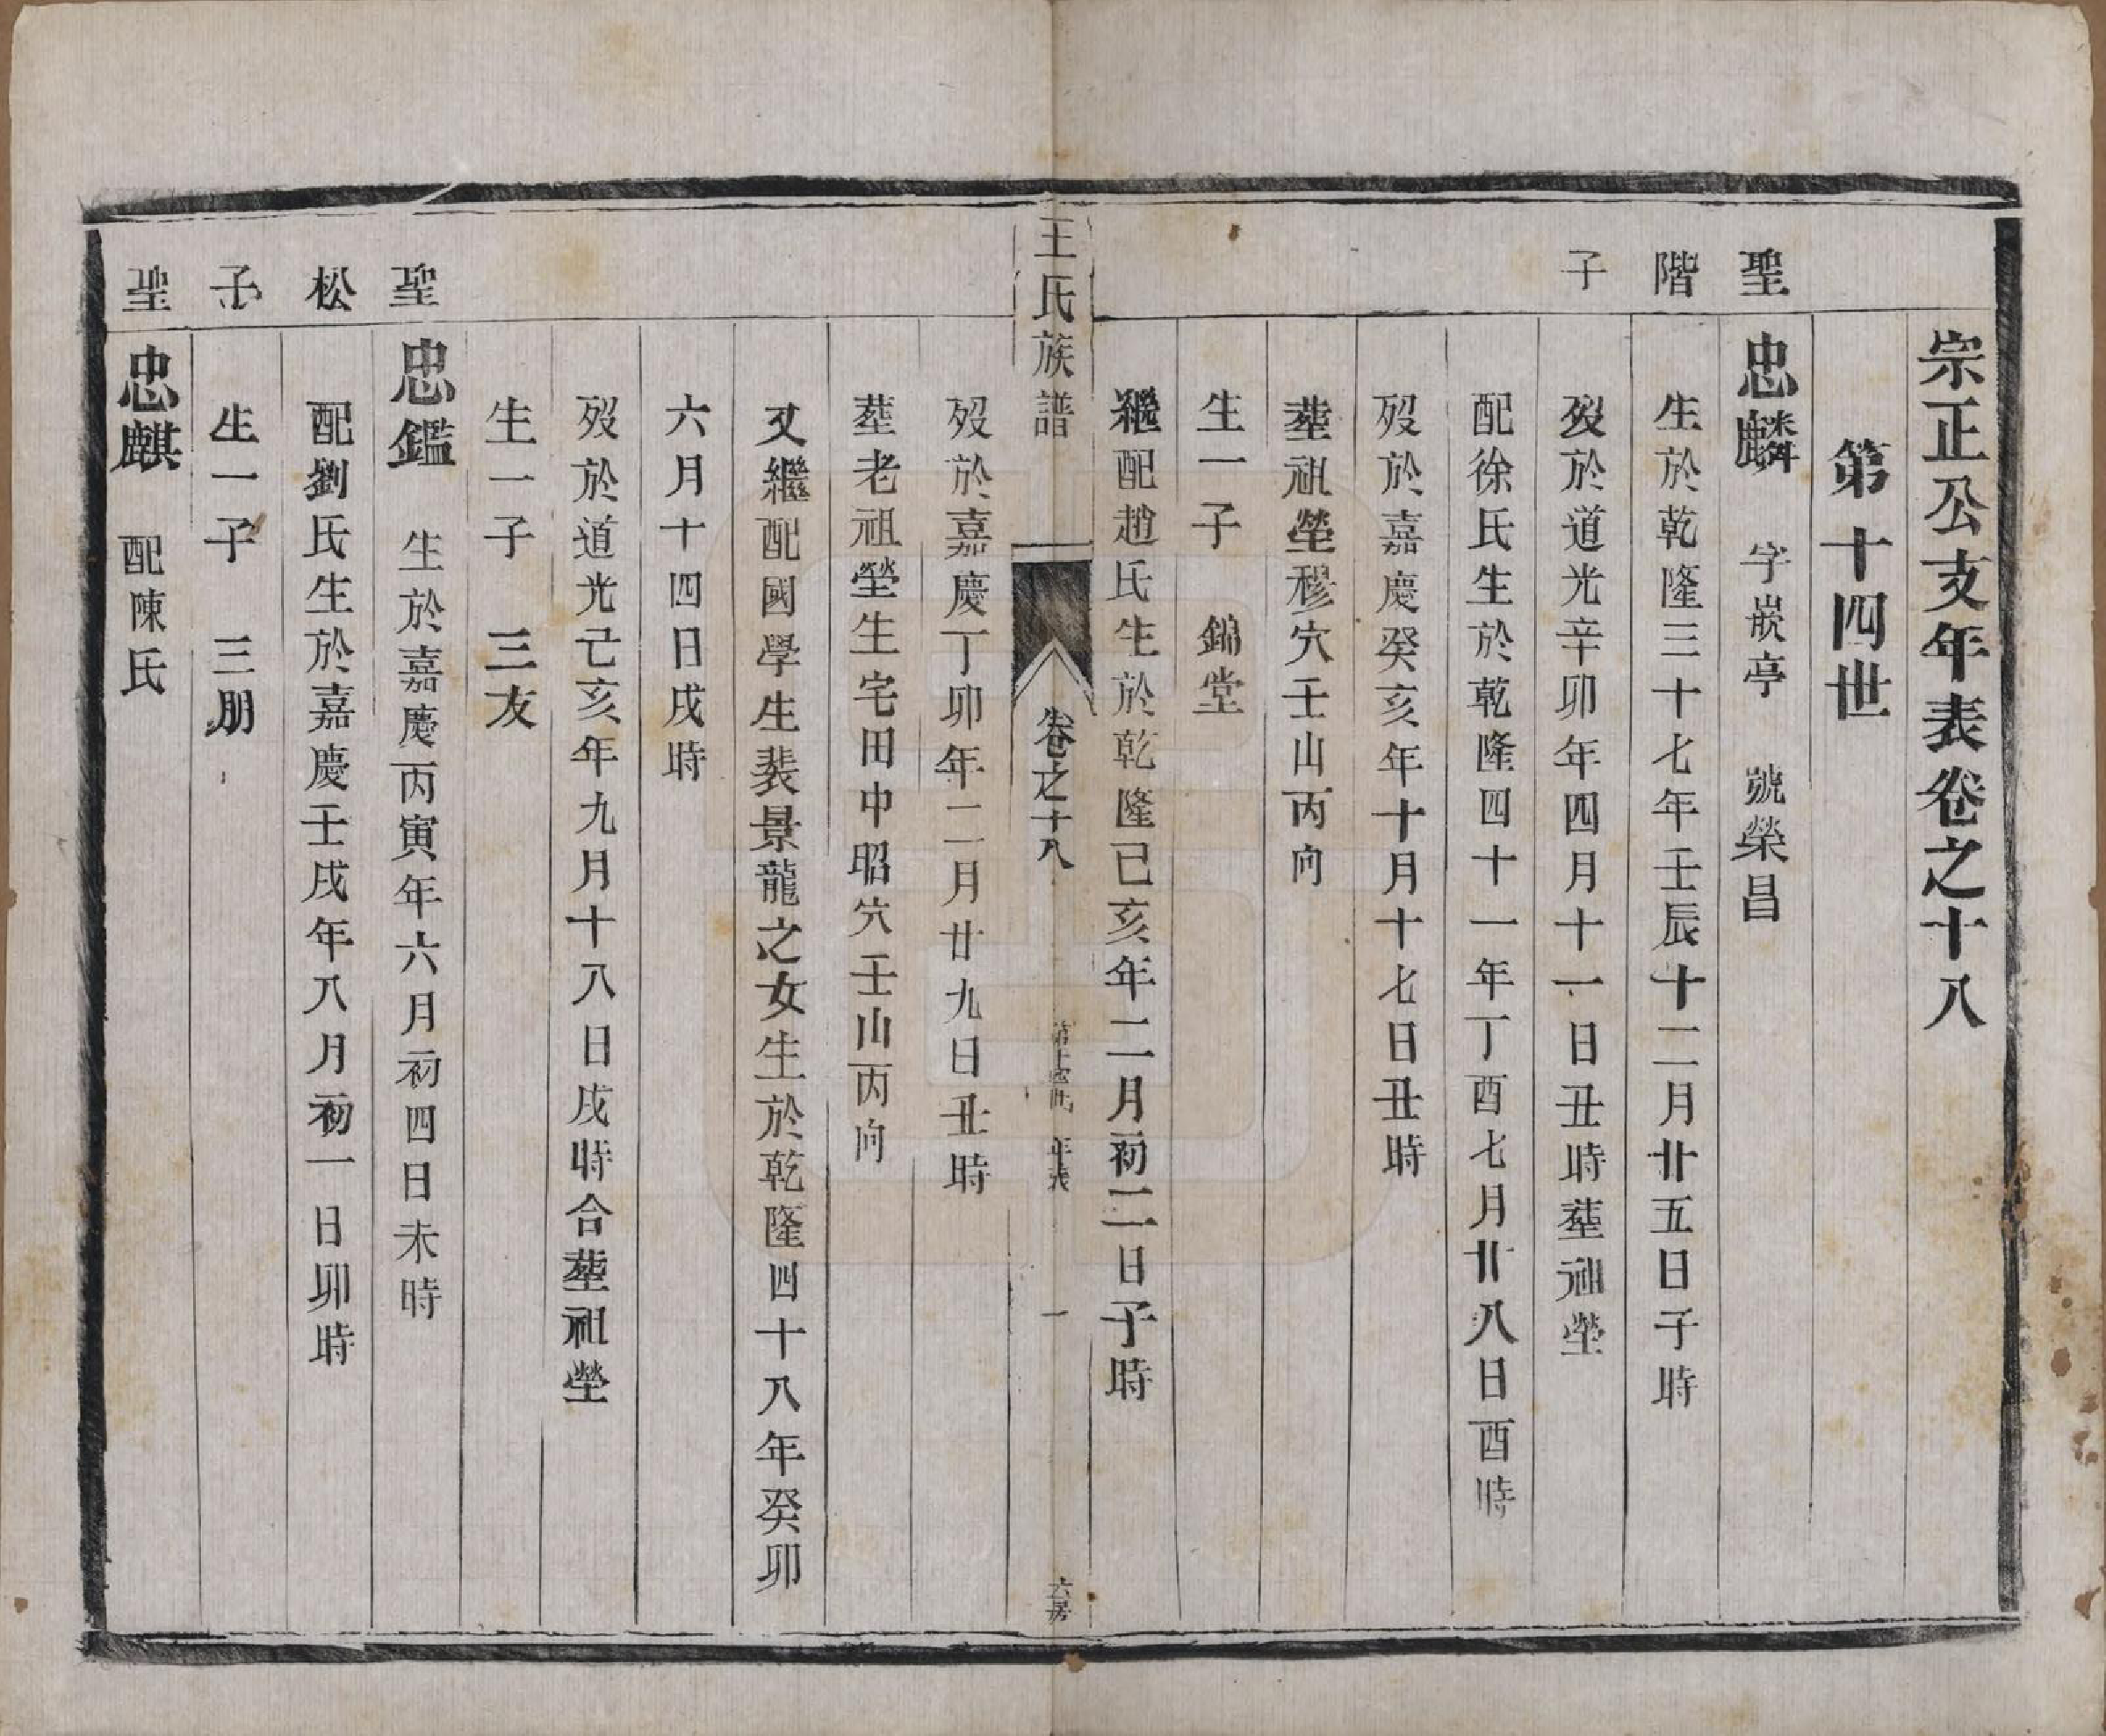 宗正公支年表卷之十八
第十四世
聖階子
忠麟 字嵌亭 號榮昌
生於乾隆三十七年壬辰十二月廿五日子時
歿於道光辛卯年四月十一日丑時塟祖塋
配徐氏生於乾隆四十一年丁酉七月廿八日酉時
歿於嘉慶癸亥年十月十七日丑時
塟祖塋穆穴壬山丙向
生一子 錦堂
繼配趙氏生於乾隆己亥年二月初二日子時
王氏族譜 卷之十八 年表 一 六房
歿於嘉慶丁卯年二月廿九日丑時
塟老祖塋生宅田中昭穴壬山丙向
又繼配國學生裴景龍之女生於乾隆四十八年癸卯
六月十四日戌時
歿於道光己亥年九月十八日戌時合塟祖塋
生一子 三友
聖松子
忠鑑 生於嘉慶丙寅年六月初四日未時
配劉氏生於嘉慶壬戌年八月初一日卯時
生一子 三朋
聖
忠麒 配陳氏